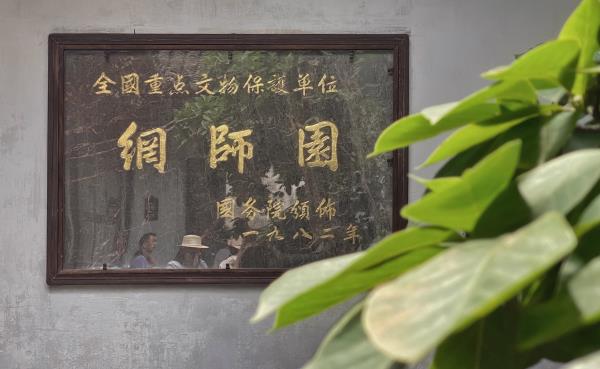 全國重点文物保護单位
網師園
國务院頒佈
一九八二年